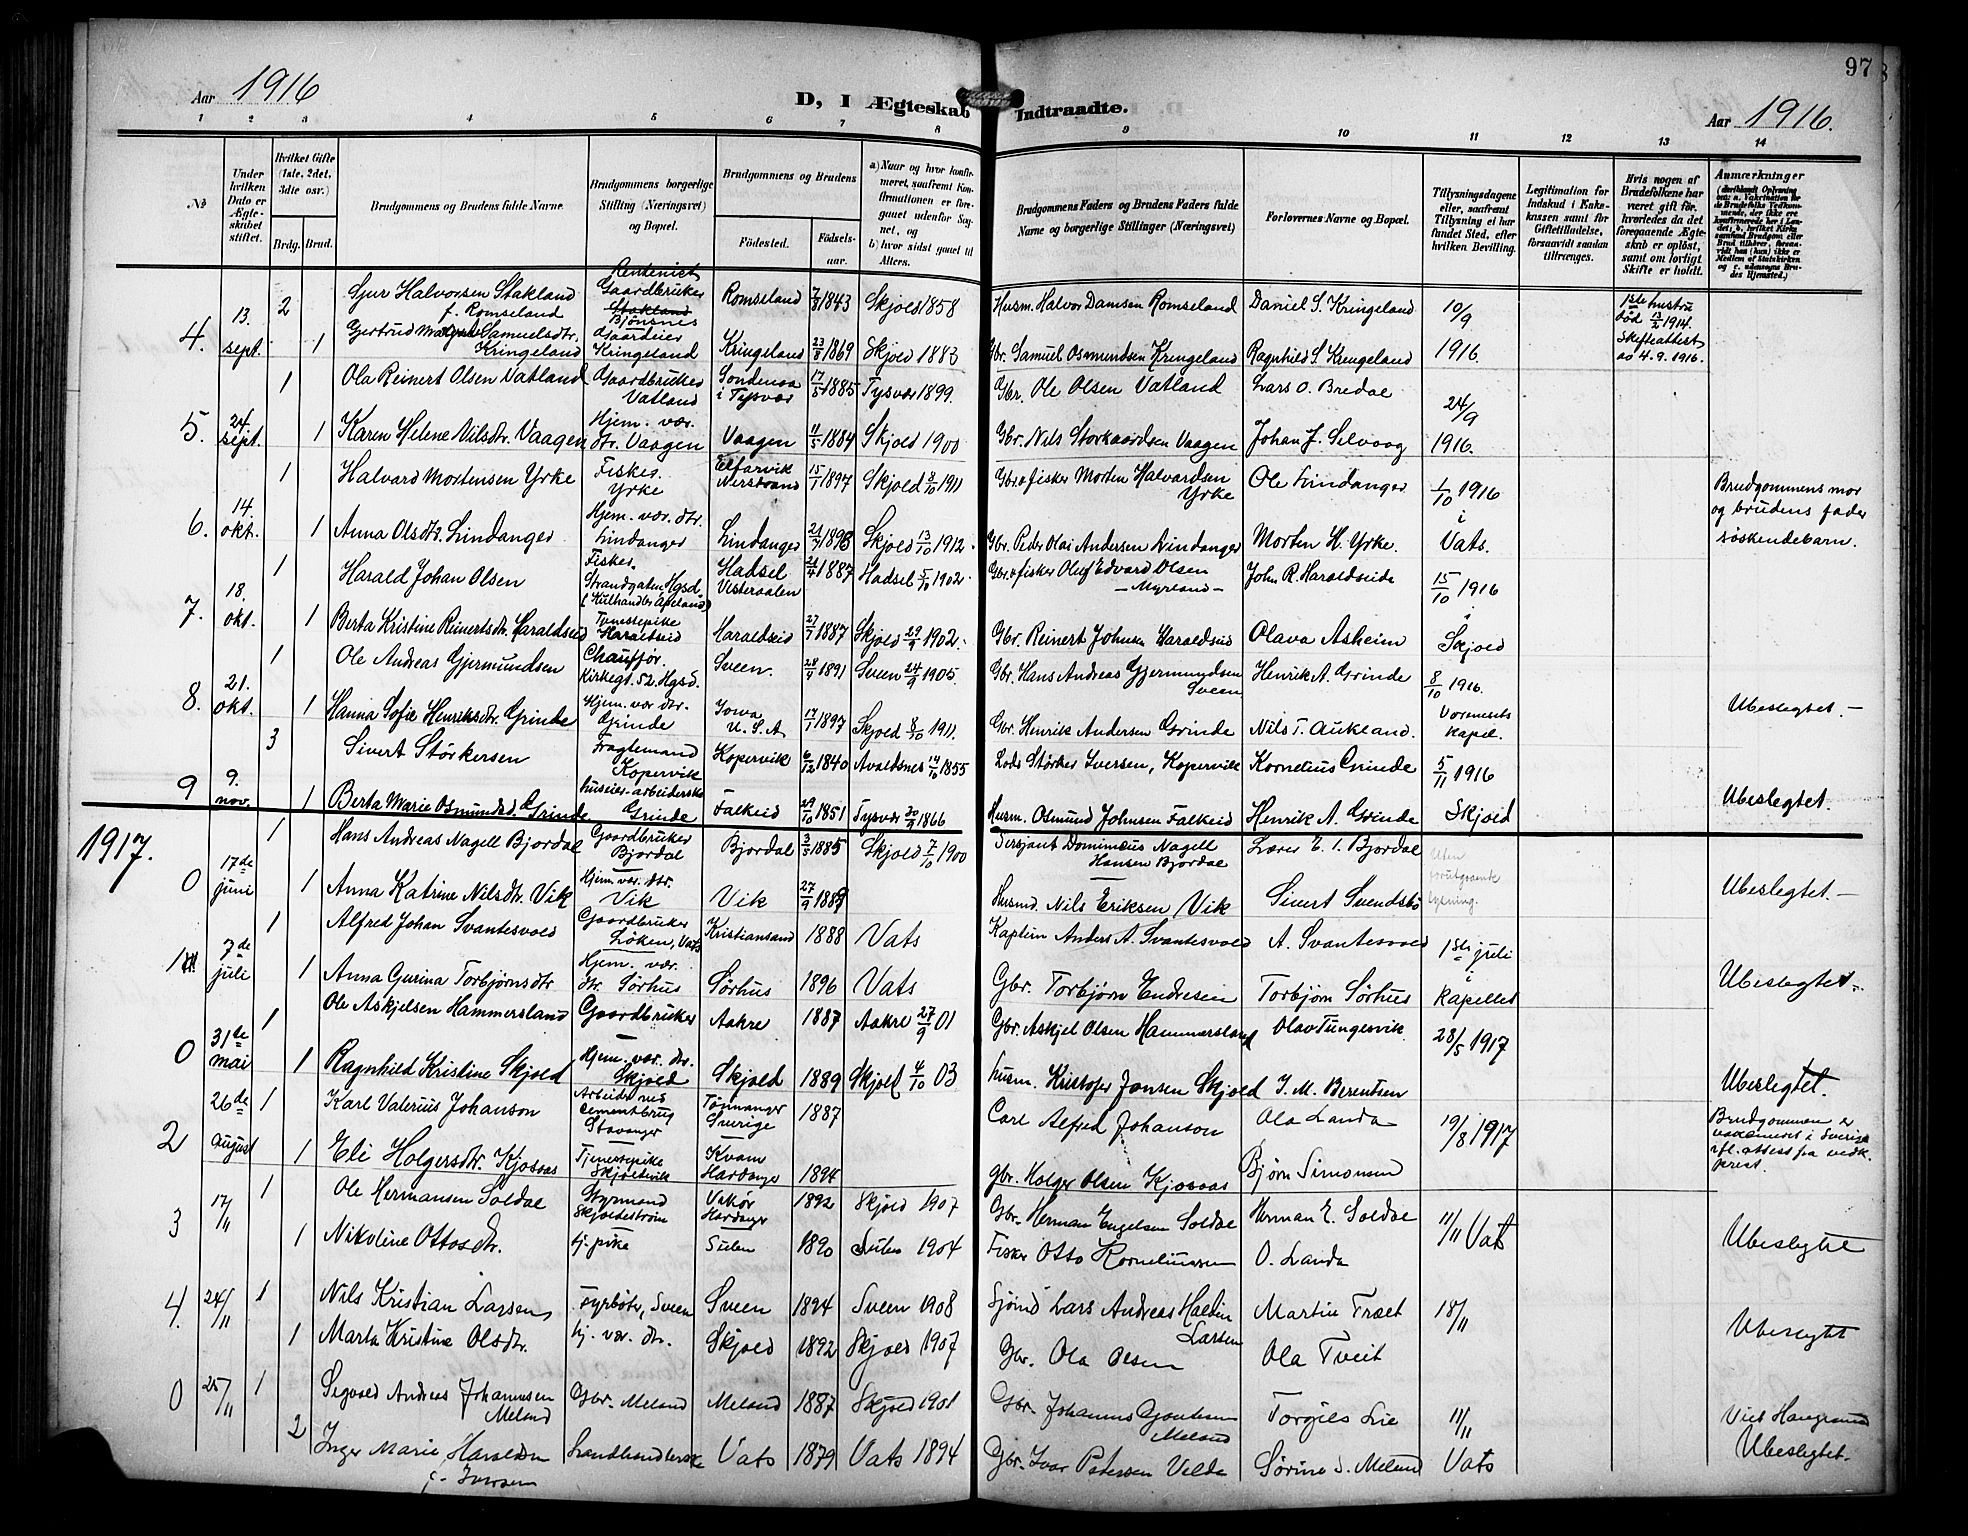 97
Aar 1916
D, I Ægteskab Indtraadte.
Aar 1916.
1 2 3 4 5 6 7 8 9 10 11 12 13 14
No
Under hvilken Dato er Ægteskabet stiftet.
Hvilket Gifte (1ste, 2det, 3die osv.)
Brdg. Brud.
Brudgommens og Brudens fulde Navne.
Brudgommens borgerlige Stilling (Næringsvei) og Bopæl.
Brudgommens og Brudens
Fødested.
Fødselsaar.
a) Naar og hvor konfirmeret, saafremt Konfirmationen er foregaaet udenfor Sognet, og
b) hvor sidst gaaet til Alters.
Brudgommens Faders og Brudens Faders fulde Navne og borgerlige Stillinger (Næringsvei)
Forlovernes Navne og Bopæl.
Tillysningsdagene eller, saafremt Tillysning ei har fundet Sted, efter hvilken Bevilling.
Legitimation for Indskud i Enkekassen samt for Giftetilladelse, forsaavidt saadan tiltrænges.
Hvis nogen af Brudefolkene har været gift før, hvorledes da det foregaaende Ægteskab er opløst, samt om lovligt Skifte er holdt.
Anmærkninger
4. 13. sept. 2 Gjur Halvorsen Stakland f. Romseland Rentenist Gaardbruker Stakland Bjønsnes Romseland 1843 Skjold 1858 Husm. Halvor Damsen Romseland Daniel S. Kringeland 10/9 1ste hustru død 13/2 1914. Skifteattest av 4.9.1916.
1 Gjertrud Samuelsdtr. Kringeland Kringeland Kringeland 23/8 1869 Skjold 1883 Gbr. Samuel Osmundsen Kringeland Ragnhild S. Kringeland 1916.
1 Ola Reinert Olsen Vatland Gaardbruker Vatland Søndenaa i Tysvær 17/5 1885 Tysvær 1899. Gbr. Ole Olsen Vatland Lars O. Bredal 24/9
5. 24. sept. 1 Karen Helene Nilsdtr. Vaagen Hjem. vær. dtr. Vaagen Vaagen 11/5 1884 Skjold 1900 Gbr. Nils Storkaardsen Vaagen Johan J. Selvaag 1916.
1 Halvard Mortensen Yrke Fisker Yrke Nerstrand 15/1 1897 Skjold 1911 Gbr. & fisker Morten Halvardsen Yrke Ole Lindanger 1/10 1916 Brudgommens mor og brudens fader søskendebarn.
6. 14. okt. 1 Anna Olsdtr. Lindanger Hjem. vær. dtr. Lindanger Lindanger Skjold 13/10 1912. Gbr. Peder Olai Andersen Lindanger Morten H. Yrke. i Vats.
1 Harald Johan Olsen Fisker. Strandgaten, Hgsd. Hadsel Vesteraalen 1887 Hadsel 5/10 1902. Gbr. & fisker Oluf Edvard Olsen — Myrland — John R. Haraldseid 15/10 1916
7. 18. okt. 1 Berta Kristine Reinertsdtr. Haraldseid Tjenestepike Haraldseid Haraldseid 27/7 1887 Skjold 29/9 1902. Gbr. Reinert Johnsen Haraldseid Olava Asheim i Skjold
1 Ole Andreas Gjermundsen Chauffør. Kirkegt. 52. Hgsd. Sveen. 1891 Sveen 24/9 1905. Gbr. Hans Andreas Gjermundsen Sveen Henrik A. Grinde 8/10 1916.
8. 21. okt. 1 Hanna Sofie Henriksdtr. Grinde Hjem. vær dtr. Grinde Iowa U. S. A 17/1 1897 Skjold 8/10 1911. Gbr. Henrik Andersen Grinde Nils T. Aukland. kapel. Ubeslegtet. —
3 Sivert Størkersen Kopervik Kopervik 6/12 1840 Avaldsnes 14/10 1855 Lods Størker Iversen, Kopervik Kornelius Grinde 5/11 1916
9 9. nov. 1 Berta Marie Osmundsd. Grinde Grinde Falkeid 29/10 1851 Tysvær 1866 Husm. Osmund Johnsen Falkeid Henrik A. Grinde Skjold Ubeslegtet.
1917.
1 Hans Andreas Nagell Bjordal Gaardbruker Bjordal Bjordal 3/5 1885 Skjold 7/10 1900 Sersjant Dominicus Nagell Hansen Bjordal Lærer E. I. Bjordal Uten forutgaaende lysning.
0 17de juni 1 Anna Katrine Nilsdtr. Vik Hjem. vær. dtr. Vik Vik 27/9 1889 Husmd. Nils Eriksen Vik Sivert Svendsbø Ubeslegtet. —
1 Alfred Johan Svantesvold Gaardbruker Løken, Vats Kristiansand 1888 Vats Kaptein Anders A. Svantesvold A. Svantesvold 1ste juli
1 7de juli 1 Anna Gurina Torbjørnsdtr Hjem. vær. dtr. Sørhus Sørhus 1896 Vats Gbr. Torbjørn Endresen Torbjørn Sørhus i kapellet Ubeslegtet.
1 Ole Askjelsen Hammersland Gaardbruker Aakre 1887 Aakre 27/9 01 Gbr. Askjel Olsen Hammersland Olav Tungesvik 28/5 1917
0 31de mai 1 Ragnhild Kristine Skjold Hjem. vær. dtr. Skjold Skjold 1889 Skjold 4/10 03 husm. Kristofer Jonsen Skjold J. M. Berentsen Ubeslegtet.
26de 1 Karl Valerius Johanson Arbeider ved Cementbrug Stavanger Sverige 1887 Carl Alfred Johanson Ola Landa 19/8 1917 Brudgommen er i Sverige ifl. attest fra vedk. prest.
2 august 1 Eli Holgersdtr. Kjosaas Tjenestepike Skjoldevik Kvam Hardanger 1894 gbr. Holger Olsen Kjosaas Bjørn Simonsen
3 17/11 1 Ole Hermansen Soldal Styrmand Skjoldestrøm Vikør Hardanger 1892 Skjold 1907 Gbr. Herman Engelsen Soldal Herman E. Soldal 11/11 Vats Ubeslegtet
1 Nikoline Ottosdtr. tj. pike Sulen 1890 Sulen 1904 Fisker Otto Korneliussen O. Landa
4. 24/11 1 Nils Kristian Larsen Fyrbøter, Sveen Sveen 1894 Sveen 1908 Sjømd Lars Andreas Larsen Martin Træet 18/11 Ubeslegtet
1 Marta Kristine Olsdtr. hj. vær. dtr. Skjold 1892 Skjold 1907 Gbr. Ola Olsen Ola Tveit
0 25/11 1 Sigvald Andreas Johannesen Meland Gbr. Meland Meland 1887 Skjold 1901 Gbr. Johannes Meland Torgils Lie 11/11 Viet Haugesund
2 Inger Marie Haraldsen f. Iversen Landhandlerske Vats 1879 Vats 1894 Gbr. Ivar Pedersen Velde Sørine S. Meland Vats Ubeslegtet.